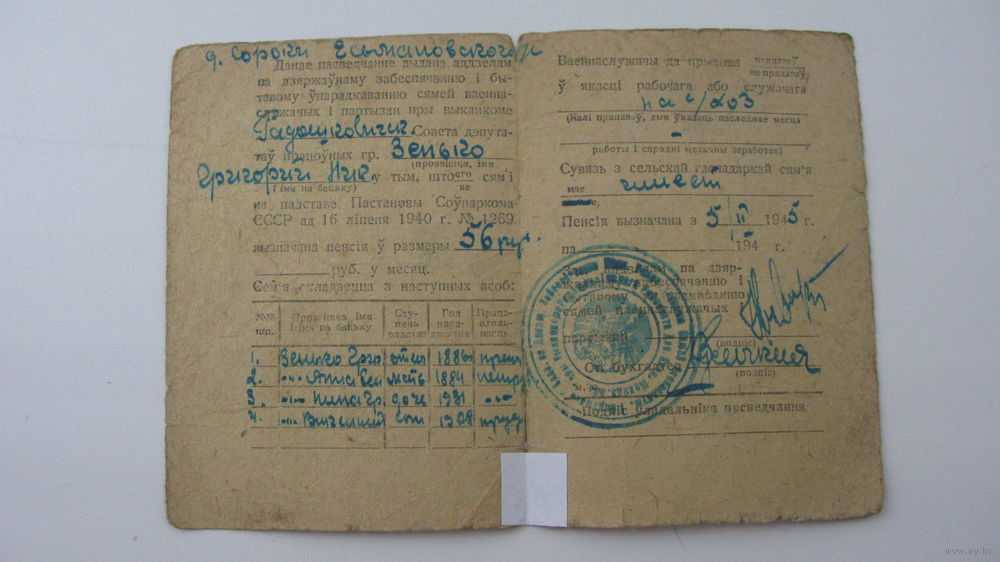 д. Сороки Есьмановского
Дзнае пасведчанне выдана аддзелам
па дзяржаўнаму забеспячэнню і бы-
тавому ўпарадкаванню сямей ваенна-
служачых і партызан пры выканкоме
Радошкович Совета дэпута-
таў працоўных гр. Зенько
(прозвішча, імя
Григорий Ник. у тым, што яго сям'і
і імя па бацьку) не
на падставе Пастановы Соўнаркома
СССР ад 16 ліпеня 1940 г. № 1269
вызначана пенсія ў размеры 56 руб.
руб. у месяц.
Сем'я складаецца з наступных асоб:
№№ п/п. Прозвішча, імя і імя па бацьку Сту-пень радства Год нара-джэння Праца-воль-насць
1. Зенько отец 1886
2. -"- Анна мать 1884
3. -"- Нина Гр. доче 1931 -"-
4. -"- сын 1908
Ваеннаслужачы да прызыва працаваў
не працаваў
ў якасці рабочага або служачага
на с/хоз
(Калі працаваў, дык ўказаць паследняе месца
-
работы і сярэдні месячны заработак)
Сувязь з сельскай гаспадаркай сям'я
мае имеет
Пенсія вызначана з 5 II 1945 г.
па 194 г.
аддзелам па дзяр-
жаўнаму забеспячэнню і
бытавому ўпарадкаванню
сямей ваеннаслужачых і
партызан
(подпіс)
Ст. бухгалтер
(подпіс)
М. П.
Подпіс уладальніка пасведчання
www.ay.by